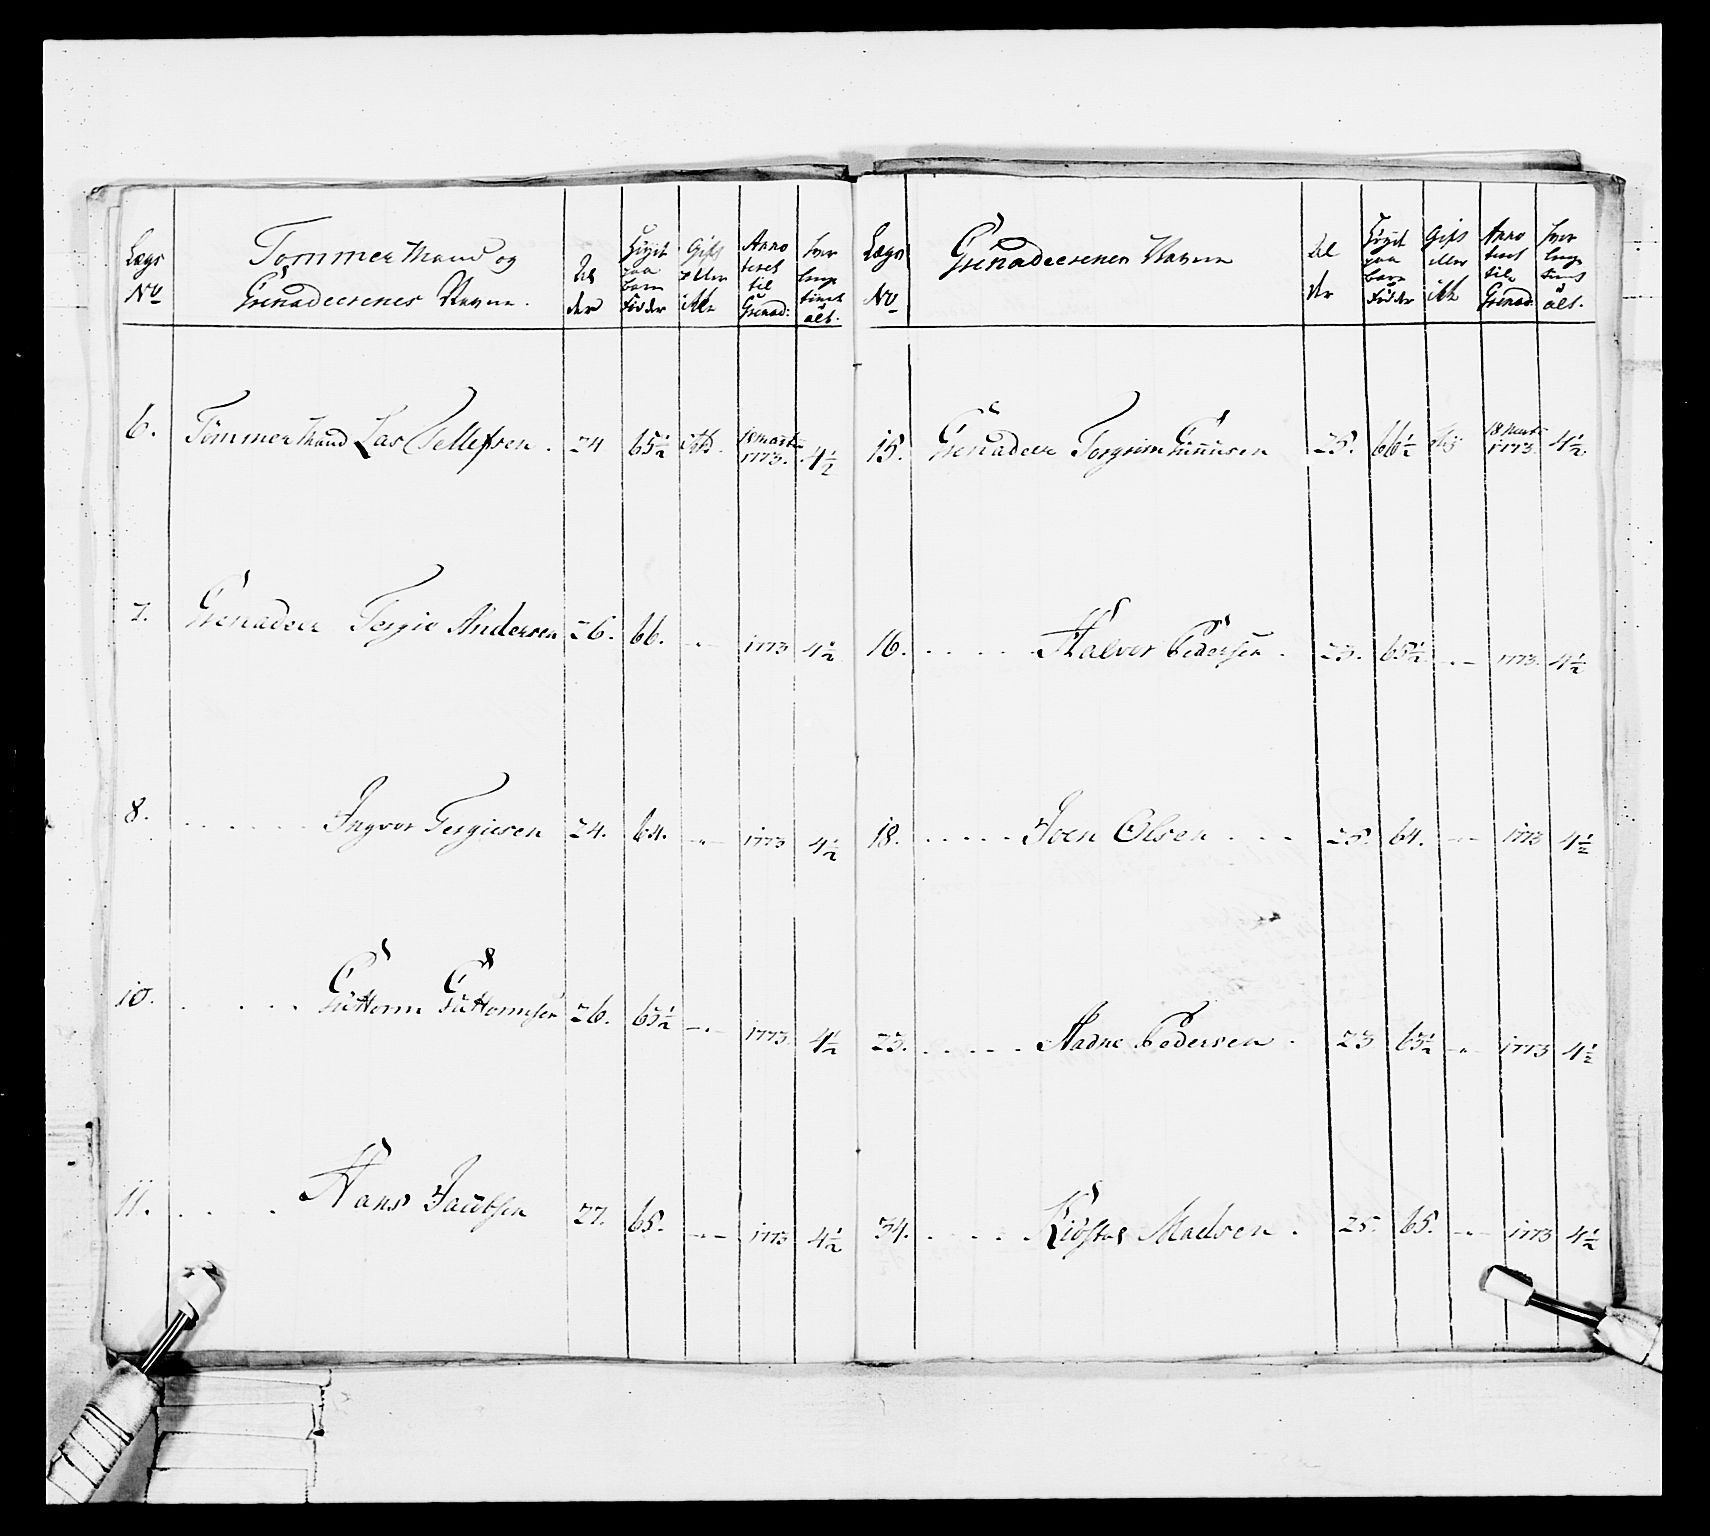 Lægs No
Tømmermand og Grenadeerenes Navne.
Al der
Høyst paa bare Födder
Gift eller ikke
Anno teret til Grenad:
hvor længe tient i alt.
6. Tømmermand Lar Tellefsen. 24 65½ 18 Marti 1773. 4½
7. Grenadeer Tergie Andersen 26. 66. -„- 1773 4½
8. . . . . . . Ingvor Tergiesen 24. 64. -„- 1773 4½
10. . . . . . Guttorm Guttormsen 26. 65½ -„- 1773. 4½
11. . . . . Hans Jacobsen 27. 65. -„- 1773 4½
Lægs No
Grenadeerenes Navne
Al der
Høyst paa bare Födder
Gift eller ikke
Anno teret til Grenad:
hvor længe tient i alt.
15. Grenadeer Torgrim Gunnusen 25. 66½ 18 Marti 1773. 4½
16. . . . . . Halvor Pedersen . 23. 65½ -„- 1773. 4½
18. . . . . . Joen Olsen . . . 25. 64. -„- 1773 4½
23. . . . . . Aadne Pedersen . 23 65½ -„- 1773 4½
34. . . . . Madsen . 25. 65. -„- 1773 4½